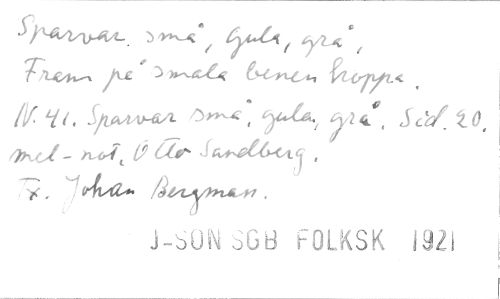 Sparvar små, gula, grå,
Fram på smala benen hoppa.
N. 41. Sparvar små, gula, grå. Sid. 20.
mel-not, Otto Sandberg.
Tx. Johan Bergman.
J-SON SGB FOLKSK 1921